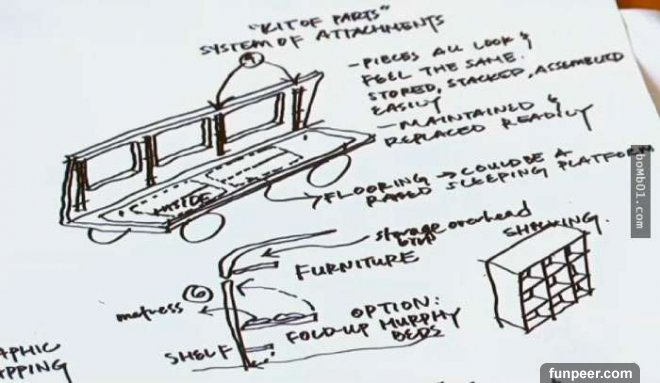 "KIT OF PARTS"
SYSTEM OF ATTACHMENTS
- PIECES ALL LOOK &
FEEL THE SAME.
STORED, STACKED, ASSEMBLED
EASILY
- MAINTAINED &
REPLACED READILY
FLOORING → COULD BE A
RAISED SLEEPING PLATFORM
INSIDE
storage overhead
FURNITURE
SHELVING.
6
matress
OPTION:
FOLD-UP MURPHY
BEDS
SHELF
APHIC
PPING
bomb01.com
funpeer.com